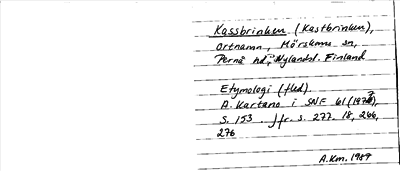 Kassbrinken (Kastbrinken),
ortnamn, Mörskom sn,
Pernå hd, Nylandsl. Finland
Etymologi (fled).
A. Kartano i SNF 61 (197
S. 153. Jfr. s. 277. 18, 266,
276
A.Km. 1989